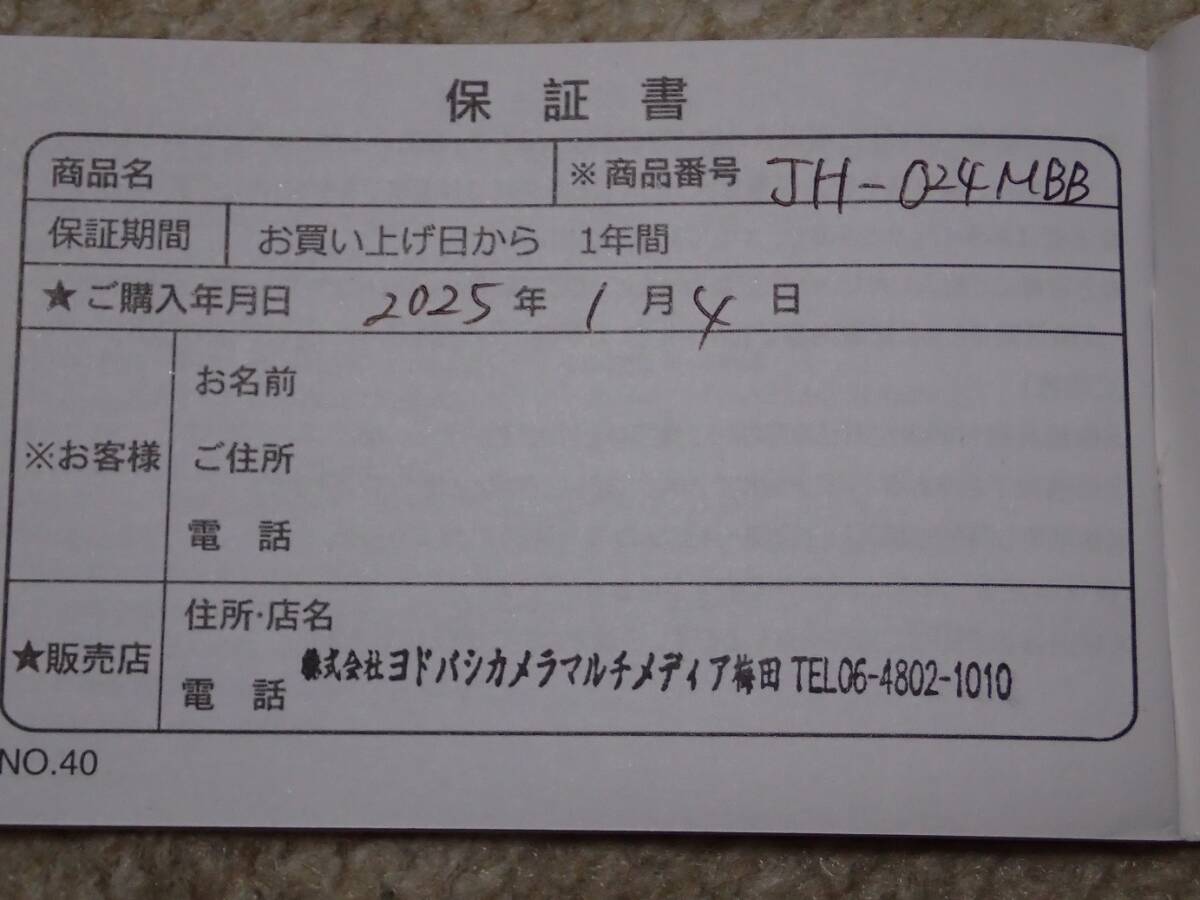 保証書
商品名 ※商品番号 JH-024MBB
保証期間 お買い上げ日から 1年間
★ご購入年月日 2025年 1月 4日
お名前
※お客様 ご住所
電話
住所・店名
★販売店 株式会社ヨドバシカメラマルチメディア梅田 TEL06-4802-1010
電話
NO.40